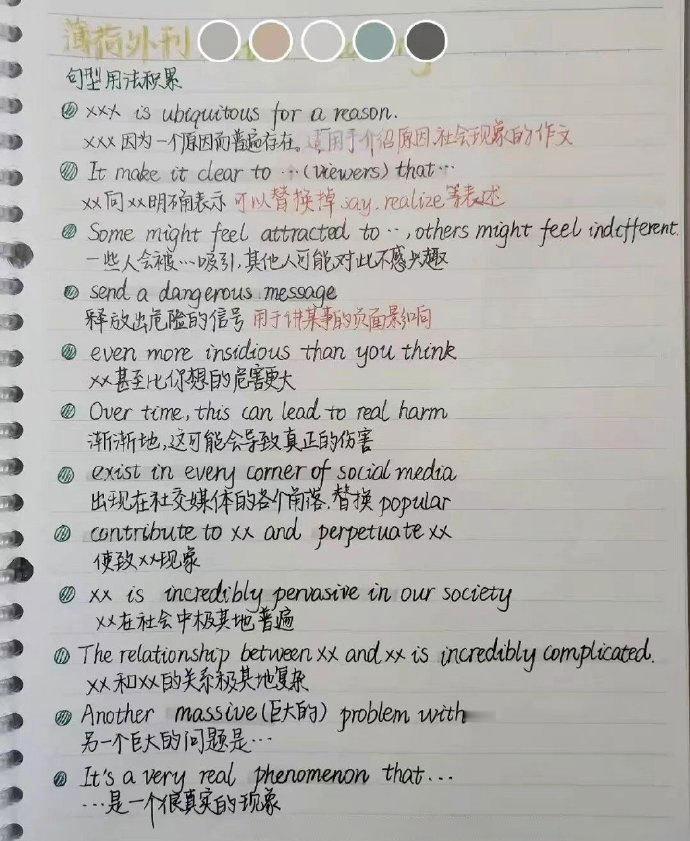 薄荷外刊
句型用法积累
xxx is ubiquitous for a reason.
xxx因为一个原因而普遍存在。适用于介绍原因、社会现象的作文
It make it clear to …(viewers) that…
xx向xx明确表示 可以替换掉 say, realize等表述
Some might feel attracted to …, others might feel indifferent.
一些人会被…吸引,其他人可能对此不感兴趣
send a dangerous message
释放出危险的信号 用于讲某事的负面影响
even more insidious than you think
xx甚至比你想的危害更大
Over time, this can lead to real harm
渐渐地,这可能会导致真正的伤害
exist in every corner of social media
出现在社交媒体的各个角落.替换 popular
contribute to xx and perpetuate xx
使致xx现象
xx is incredibly pervasive in our society
xx在社会中极其地普遍
The relationship between xx and xx is incredibly complicated.
xx和xx的关系极其地复杂
Another massive(巨大的) problem with
另一个巨大的问题是…
It's a very real phenomenon that...
…是一个很真实的现象